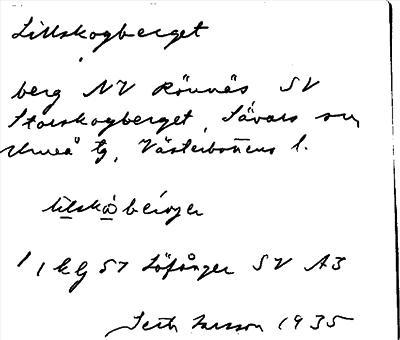 Lillskogberget
berg NV Rönnäs SV
Storskogberget, Sävars sn
Umeå tg, Västerbottens l.
lilskò bèrjer
1/1 kg 57 Löfånger SV A3
Seth Larsson 1935